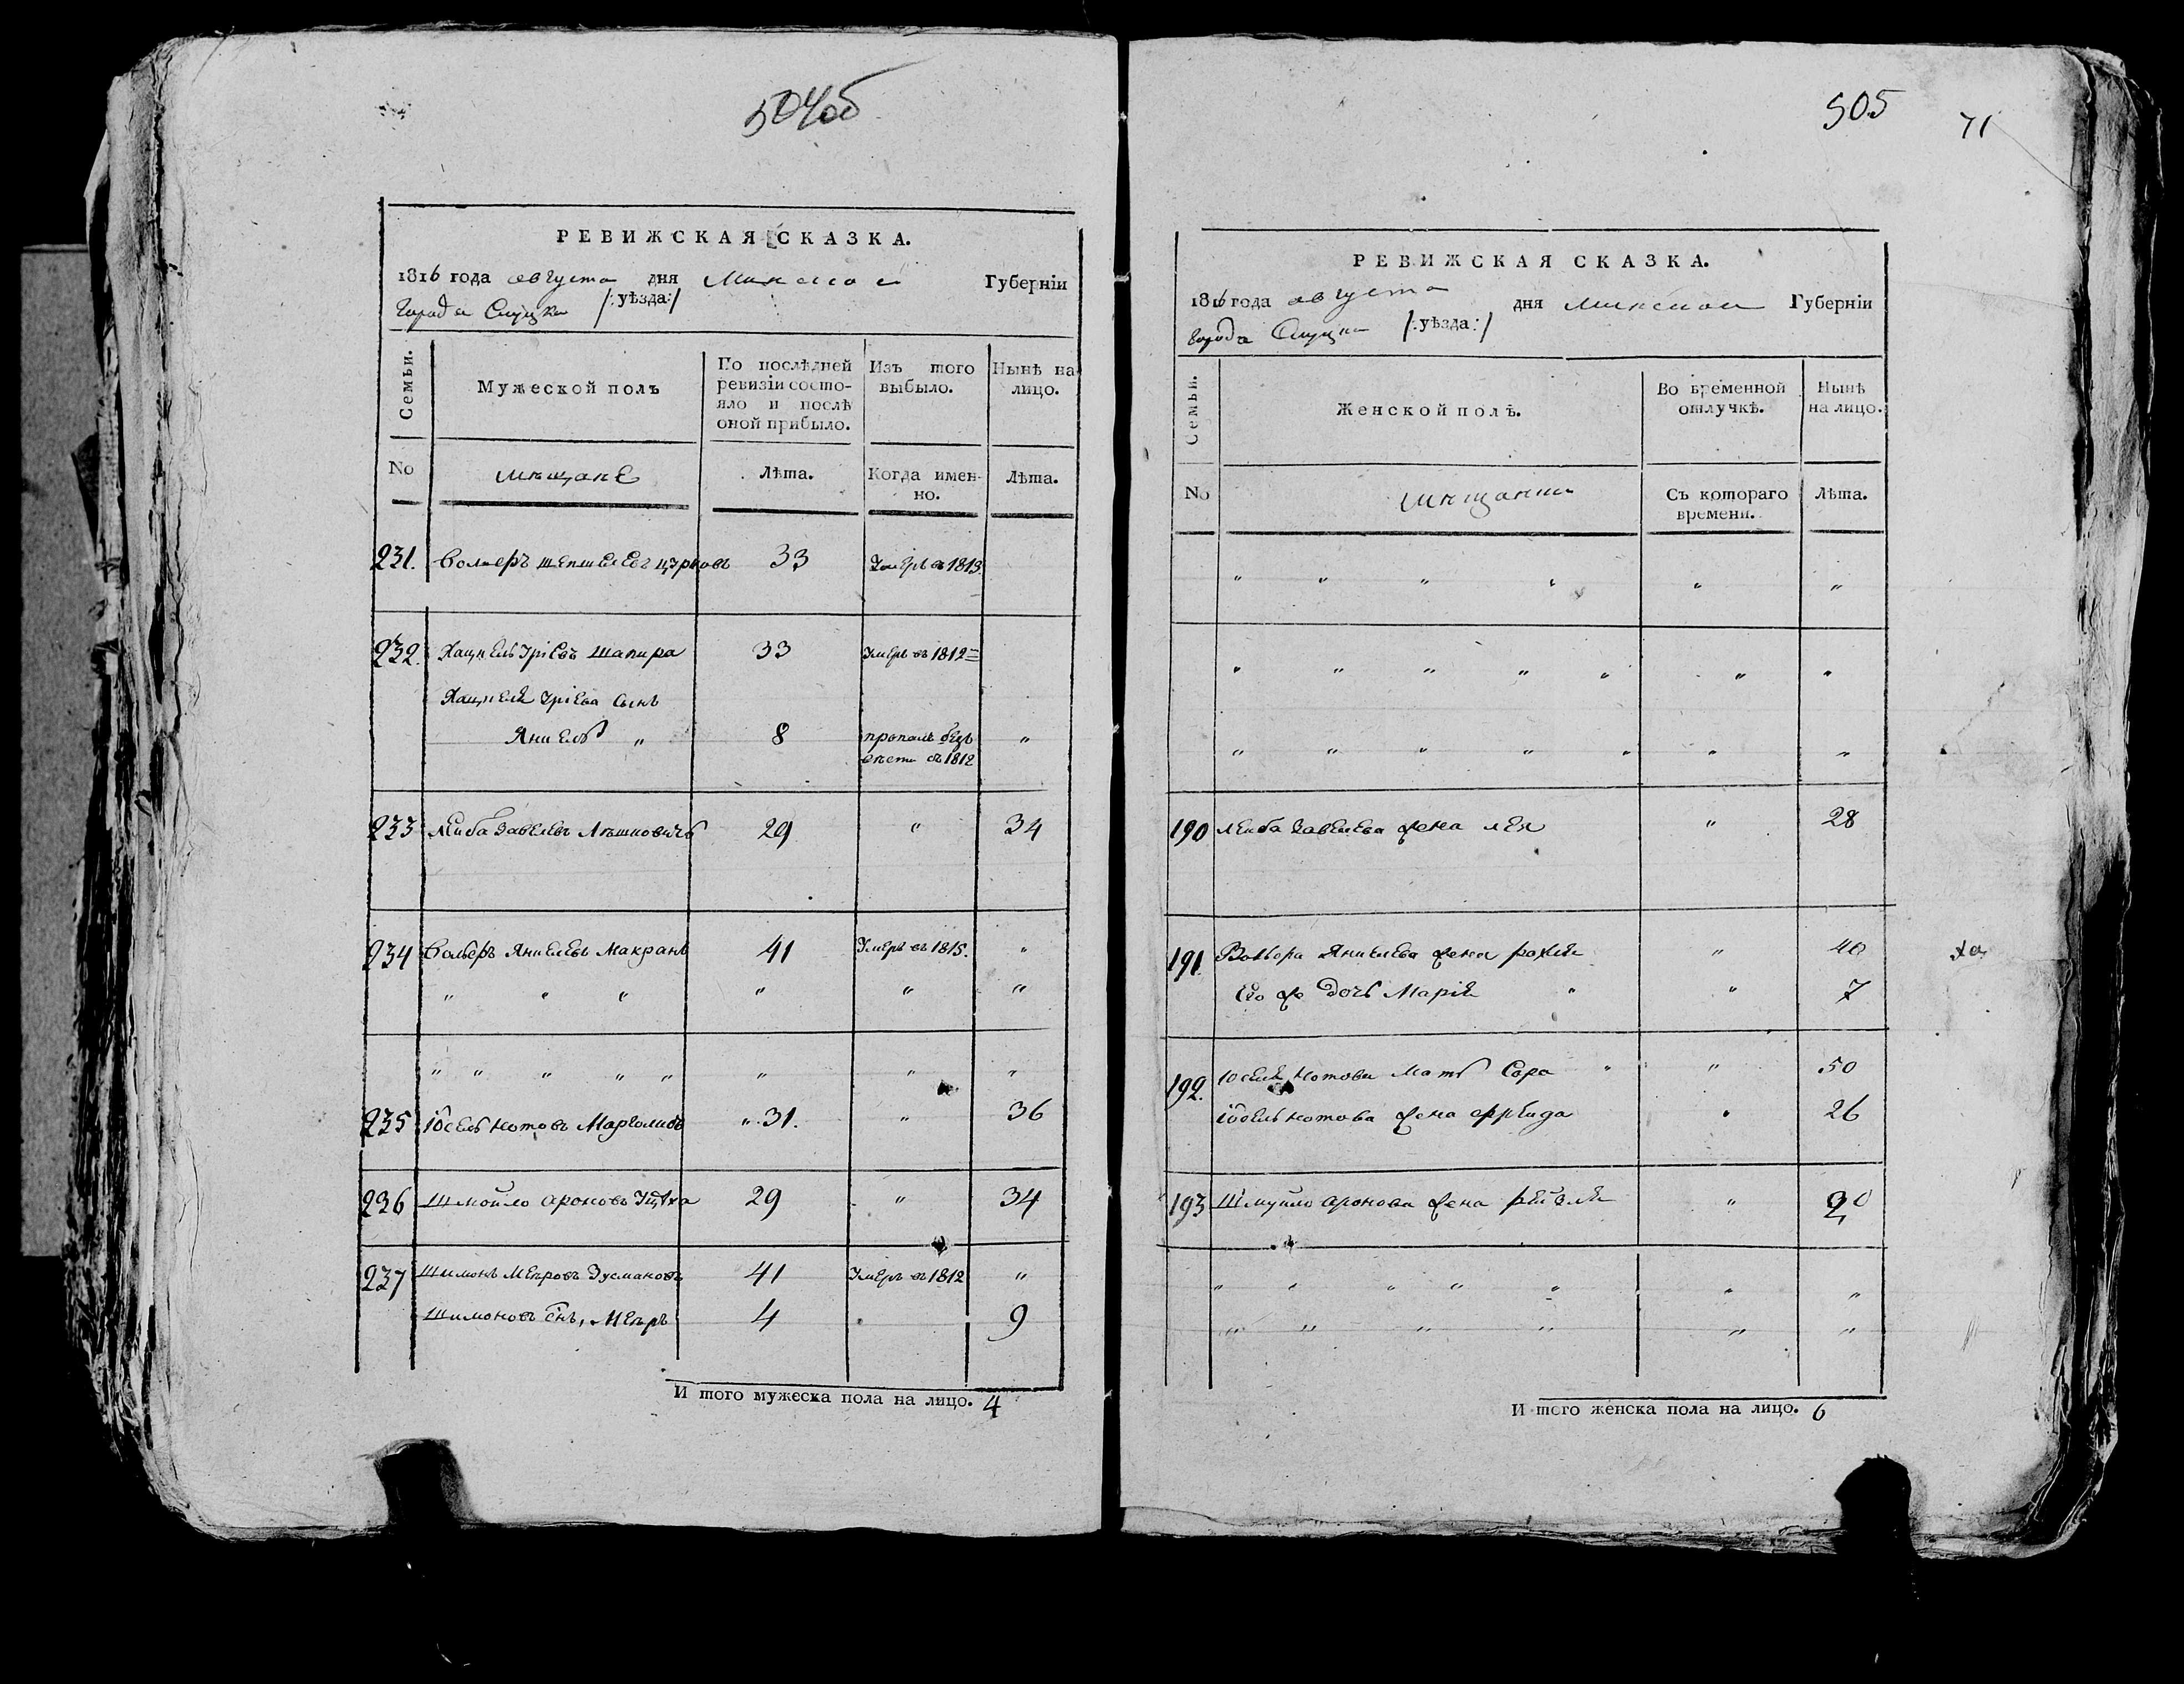 504об
РЕВИЖСКАЯ СКАЗКА.
1816 года августа дня Минской Губерніи
города Слуцка /:уѣзда:/
Семьи.
Мужеской полъ
По послѣдней ревизіи состояло и послѣ оной прибыло.
Изъ того выбыло.
Нынѣ на лицо.
No
мѣщане
Лѣта.
Когда именно.
Лѣта.
231. Волперъ 33 Умеръ въ 1813.
232. Хацкель Уріевъ Шапира 33 Умеръ въ 1812
Хацкеля Уріева сынъ
Янкель " 8 пропалъ безъ "
вѣсти въ 1812
233 Лейба Завелевъ Лѣшковичъ 29 " 34
234 Вольеръ Янкелевъ Макранъ 41 Умеръ въ 1815. "
" " " " " "
" " " " " " " "
235 Іосель Нотовъ Марголисъ " 31. " 36
236 Шмойло Ароновъ 29 " 34
237 Шимонъ Меѣровъ Зусмановъ 41 Умеръ въ 1812 "
Шимоновъ снъ, Меѣръ 4 9
И того мужеска пола на лицо. 4
505
71
РЕВИЖСКАЯ СКАЗКА.
1816 года августа дня Минской Губерніи
города Слуцка /:уѣзда:/
Семьи.
Женской полъ.
Во временной отлучкѣ.
Нынѣ на лицо.
No
мѣщанки
Съ котораго времени.
Лѣта.
" " " " " "
" " " " " " "
" " " " " " "
190 Лейба Завелева жена Лея " 28
191. Вольера Янкелева жена Рохля " 40
Его же дочь Марія " " 7
192. Іоселя Нотова мать Сора " " 50
Іосель Нотова жена Фрейда " 26
193 Шмуйло Аронова жена Рейзля " 20
" " " " " " "
" " " " " "
И того женска пола на лицо. 6